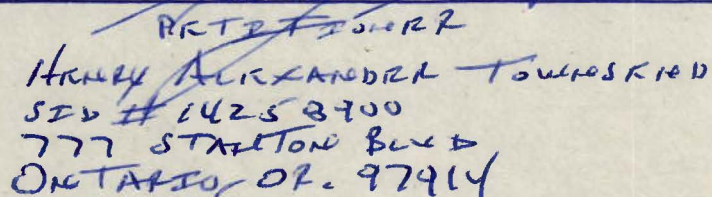 PETITIONER
HENRY ALEXANDER TOWNSEND
SID # 14258900
777 STANTON BLVD
ONTARIO, OR. 97914